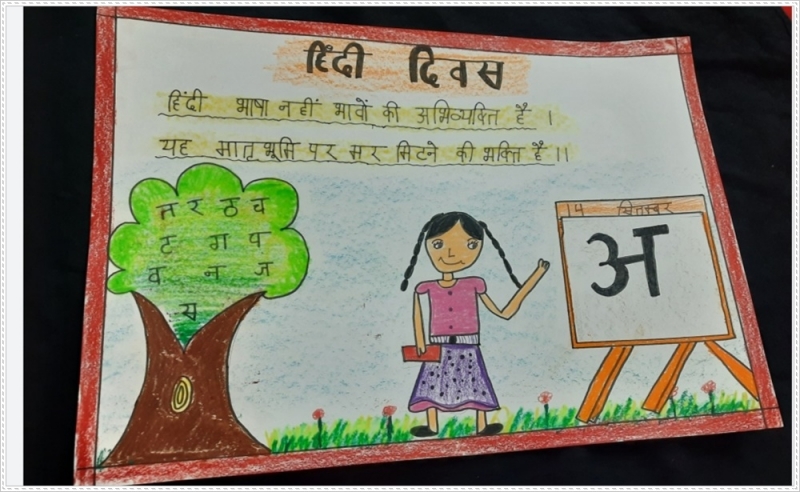 हिंदी दिवस
हिंदी भाषा नहीं भावों की अभिव्यक्ति है ।
यह मातृभूमि पर मर मिटने की भक्ति है ।।
त र ठ च
ट ग प
व न ज
स
14 सितम्बर
अ